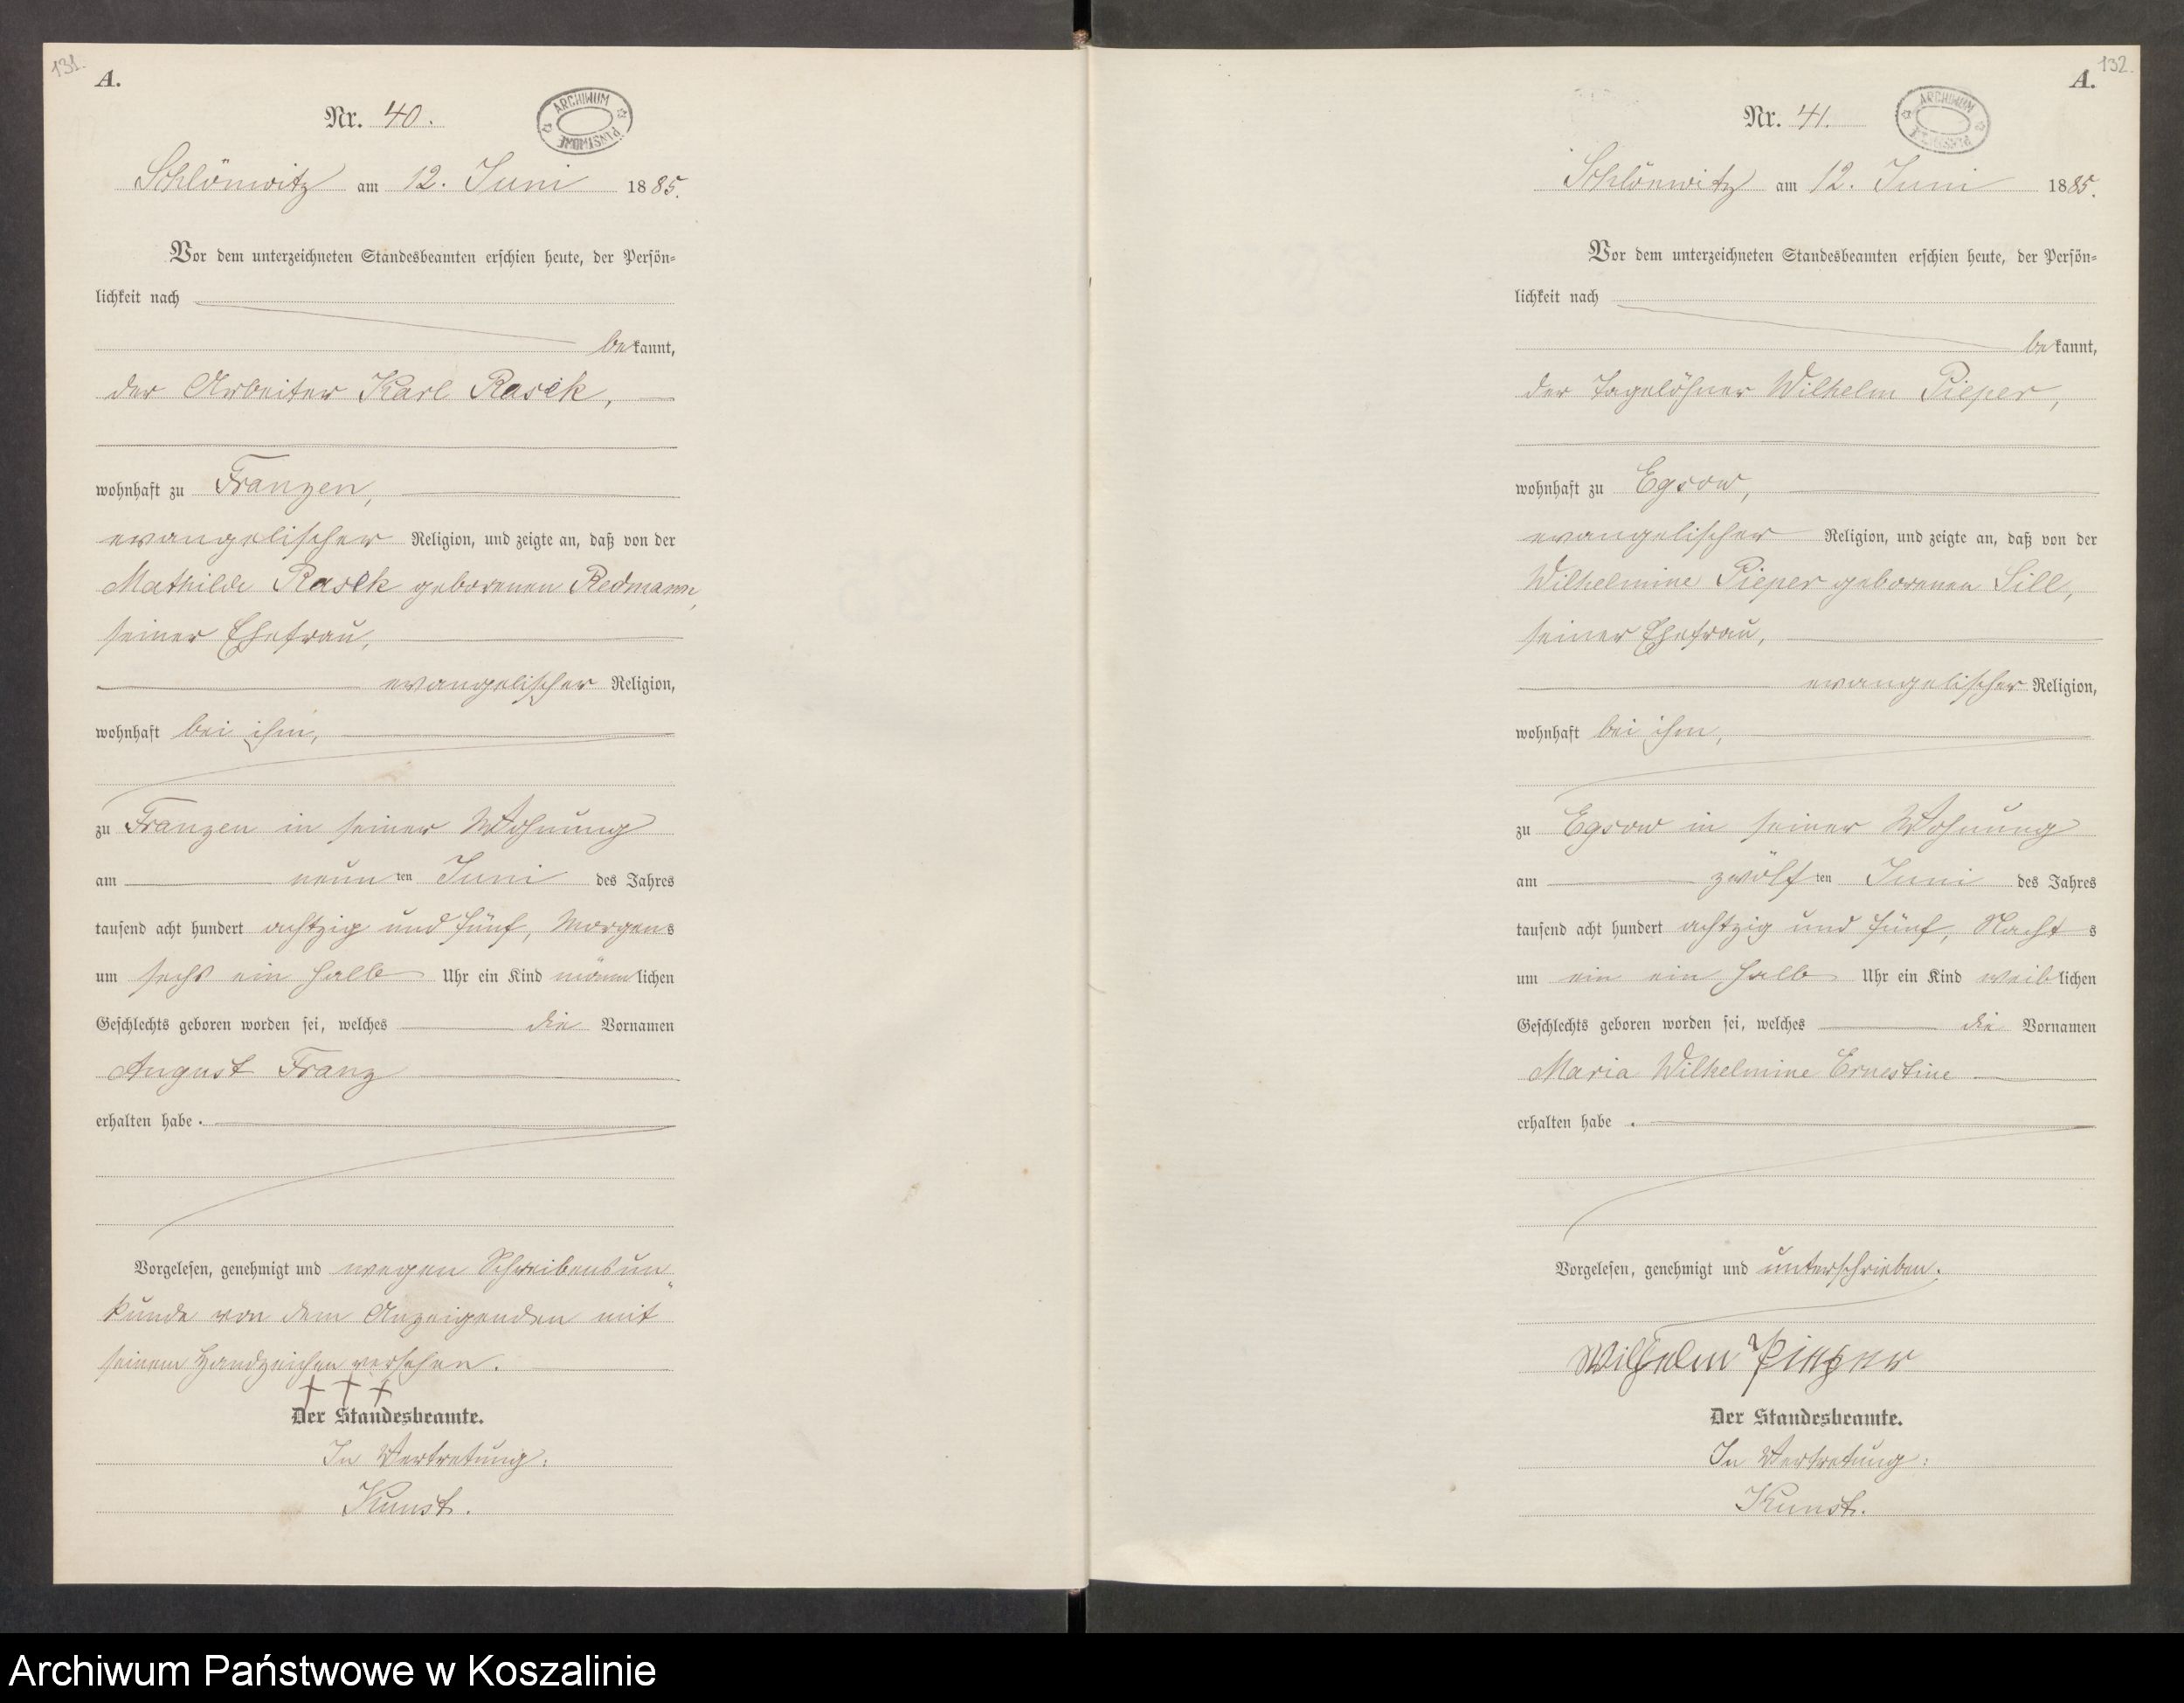 131.
A.
Nr. 40.
ARCHIWUM PAŃSTWOWE
Schlönwitz am 12. Juni 1885.
Vor dem unterzeichneten Standesbeamten erschien heute, der Persön-
lichkeit nach
bekannt,
der Arbeiter Karl Rasek,
wohnhaft zu Franzen,
evangelischer Religion, und zeigte an, daß von der
Mathilde Rasek geborenen Redmann,
seiner Ehefrau,
evangelischer Religion,
wohnhaft bei ihm,
zu Franzen in seiner Wohnung
am neunten Juni des Jahres
tausend acht hundert achtzig und fünf, Morgens
um sechs ein halb Uhr ein Kind männlichen
Geschlechts geboren worden sei, welches die Vornamen
August Franz
erhalten habe.
Vorgelesen, genehmigt und wegen Schreibensun-
kunde von dem Anzeigenden mit
seinem Handzeichen versehen.
† † †
Der Standesbeamte.
In Vertretung:
Kunst.
132.
A.
Nr. 41.
ARCHIWUM PAŃSTWOWE
Schlönwitz am 12. Juni 1885.
Vor dem unterzeichneten Standesbeamten erschien heute, der Persön-
lichkeit nach
bekannt,
der Tagelöhner Wilhelm Pieper,
wohnhaft zu Egsow,
evangelischer Religion, und zeigte an, daß von der
Wilhelmine Pieper geborenen Sill,
seiner Ehefrau,
evangelischer Religion,
wohnhaft bei ihm,
zu Egsow in seiner Wohnung
am zwölften Juni des Jahres
tausend acht hundert achtzig und fünf, Nachts
um ein ein halb Uhr ein Kind weiblichen
Geschlechts geboren worden sei, welches die Vornamen
Maria Wilhelmine Ernestine
erhalten habe.
Vorgelesen, genehmigt und unterschrieben.
Wilhelm Pieper
Der Standesbeamte.
In Vertretung:
Kunst.
Archiwum Państwowe w Koszalinie